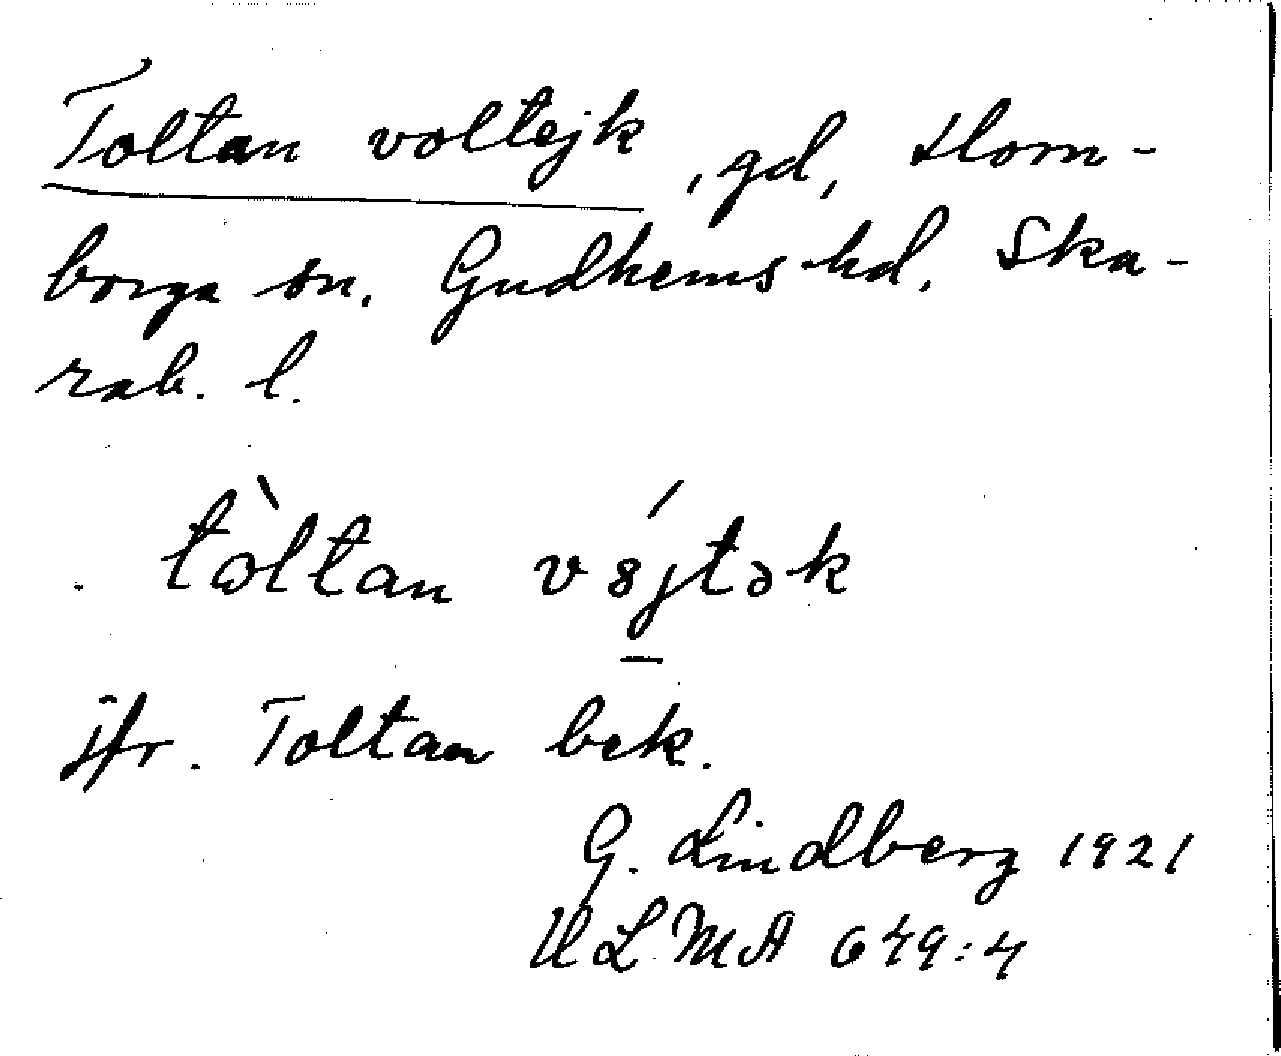 Toltan voltejk, gd, Horn-
borga sn. Gudhems hd. Ska-
rab. l.
tòltan v8́jtək
jfr. Toltan bek.
G. Lindberg 1921
ULMA 649:4